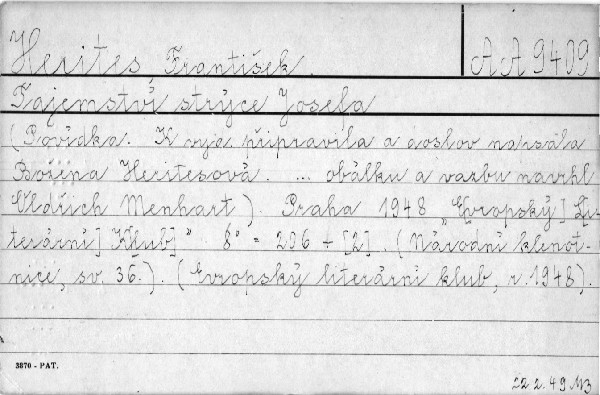 Herites, František.
AA 9409
Tajemství strýce Josefa
(Povídka. K vyd. připravila a doslov napsala
Božena Heritesová. ... obálku a vazbu navrhl
Oldřich Menhart). Praha 1948 „Evropský] Li-
terární] Klub]" 8° = 296 + [2]. (Národní klenot-
nice, sv. 36.). (Evropský literární klub, r. 1948).
3870 - PAT.
22 2. 49